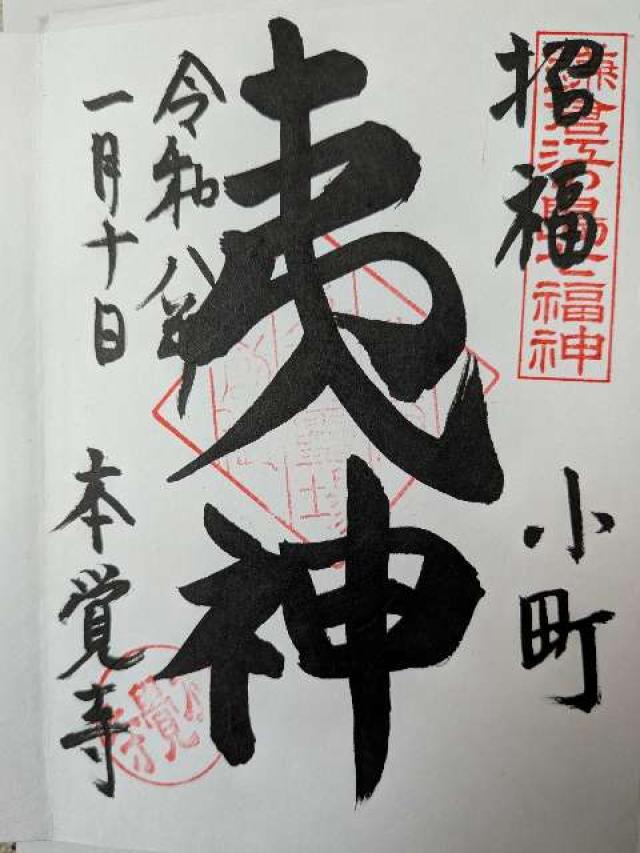 鎌倉江の島七福神
招福
小町
夷神
令和八年
一月十日
本覺寺